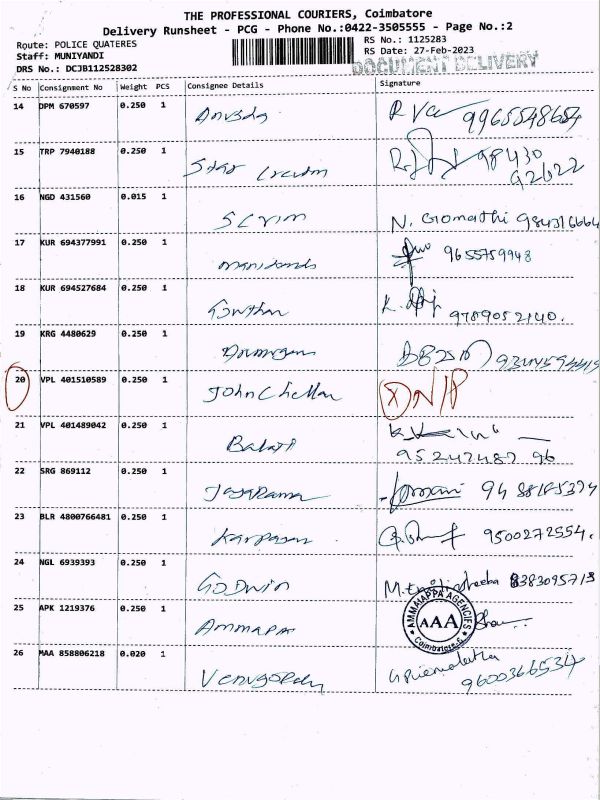 THE PROFESSIONAL COURIERS, Coimbatore
Delivery Runsheet - PCG - Phone No.:0422-3505555 - Page No.:2
Route: POLICE QUATERES RS No.: 1125283
Staff: MUNIYANDI RS Date: 27-Feb-2023
DRS No.: DCJB112528302 DOCUMENT DELIVERY
S No Consignment No Weight PCS Consignee Details Signature
14 DPM 670597 0.250 1 9965548654
15 TRP 7940188 0.250 1 Star 98430
92622
16 NGD 431560 0.015 1 Selvim N. Gomathi 984316664
17 KUR 694377991 0.250 1 9655759948
18 KUR 694527684 0.250 1 Gowthan K. 9789052140.
19 KRG 4480629 0.250 1
20 VPL 401510589 0.250 1 John Chellan X N/P
21 VPL 401489042 0.250 1 Balaji
95247487 96
22 SRG 869112 0.250 1 Jayarama
23 BLR 4800766481 0.250 1 Karpagam 9500272554.
24 NGL 6939393 0.250 1 Godwin 8383095713
25 APK 1219376 0.250 1 Ammapar AMMAIAPPA AGENCIES AAA Coimbatore
26 MAA 858806218 0.020 1 Venugopal 9600366534